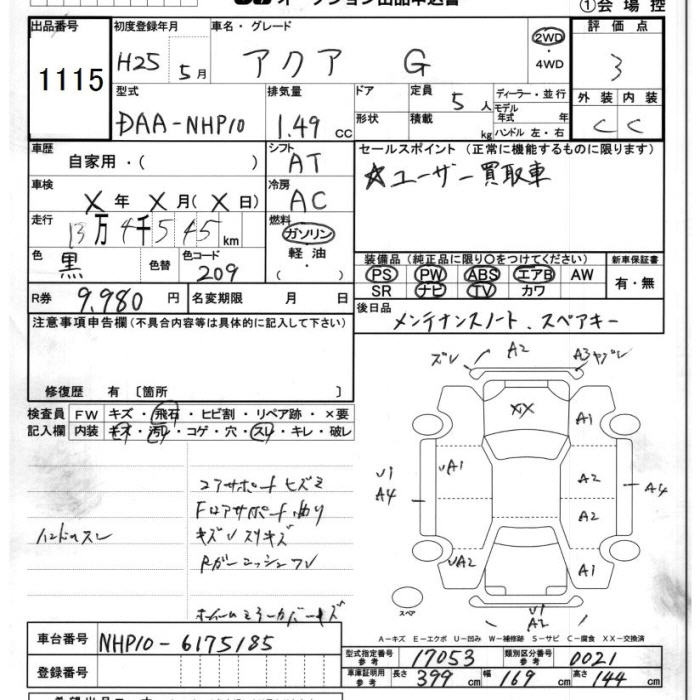 オークション出品申込書
①会場控
出品番号 初度登録年月 車名・グレード 評価点
1115 H25 5月 アクア G 2WD ・ 4WD 3
型式 排気量 ドア 定員 5人 ディーラー・並行
外装 内装
DAA-NHP10 1.49 cc 形状 積載 kg モデル年式 年 ハンドル 左・右 C C
車歴 自家用・( ) シフト AT セールスポイント (正常に機能するものに限ります)
☆ユーザー買取車
車検 X年 X月 (X日) 冷房 AC
走行 13万4千545km 燃料 ガソリン
軽油
・( )
色 黒 色替 色コード 209
装備品 (純正品に限り〇をつけてください) 新車保証書
PS PW ABS エアB AW 有・無
SR ナビ TV カワ
R券 9,980円 名変期限 月 日
後日品 メンテナンスノート、スペアキー
注意事項申告欄(不具合内容等は具体的に記入して下さい)
修復歴 有 [箇所 ]
検査員 FW キズ・飛石・ヒビ割・リペア跡・×要
記入欄 内装 キズ・汚れ・コゲ・穴・スレ・キレ・破レ
コアサポート ヒズミ
Fロアサポート 曲り
ハンドルスレ キズ
ズレ A2 A3ヤブレ
XX A1
UA1 A2
U1 A4 A4
A2
UA2 A1
スペア U1 A2
A-キズ E-エクボ U-凹み W-補修跡 S-サビ C-腐食 XX-交換済
車台番号 NHP10-6175185
登録番号
型式指定番号 参考 17053 類別区分番号 参考 0021
車庫証明用 参考 長さ 399cm 幅 169cm 高さ 144cm